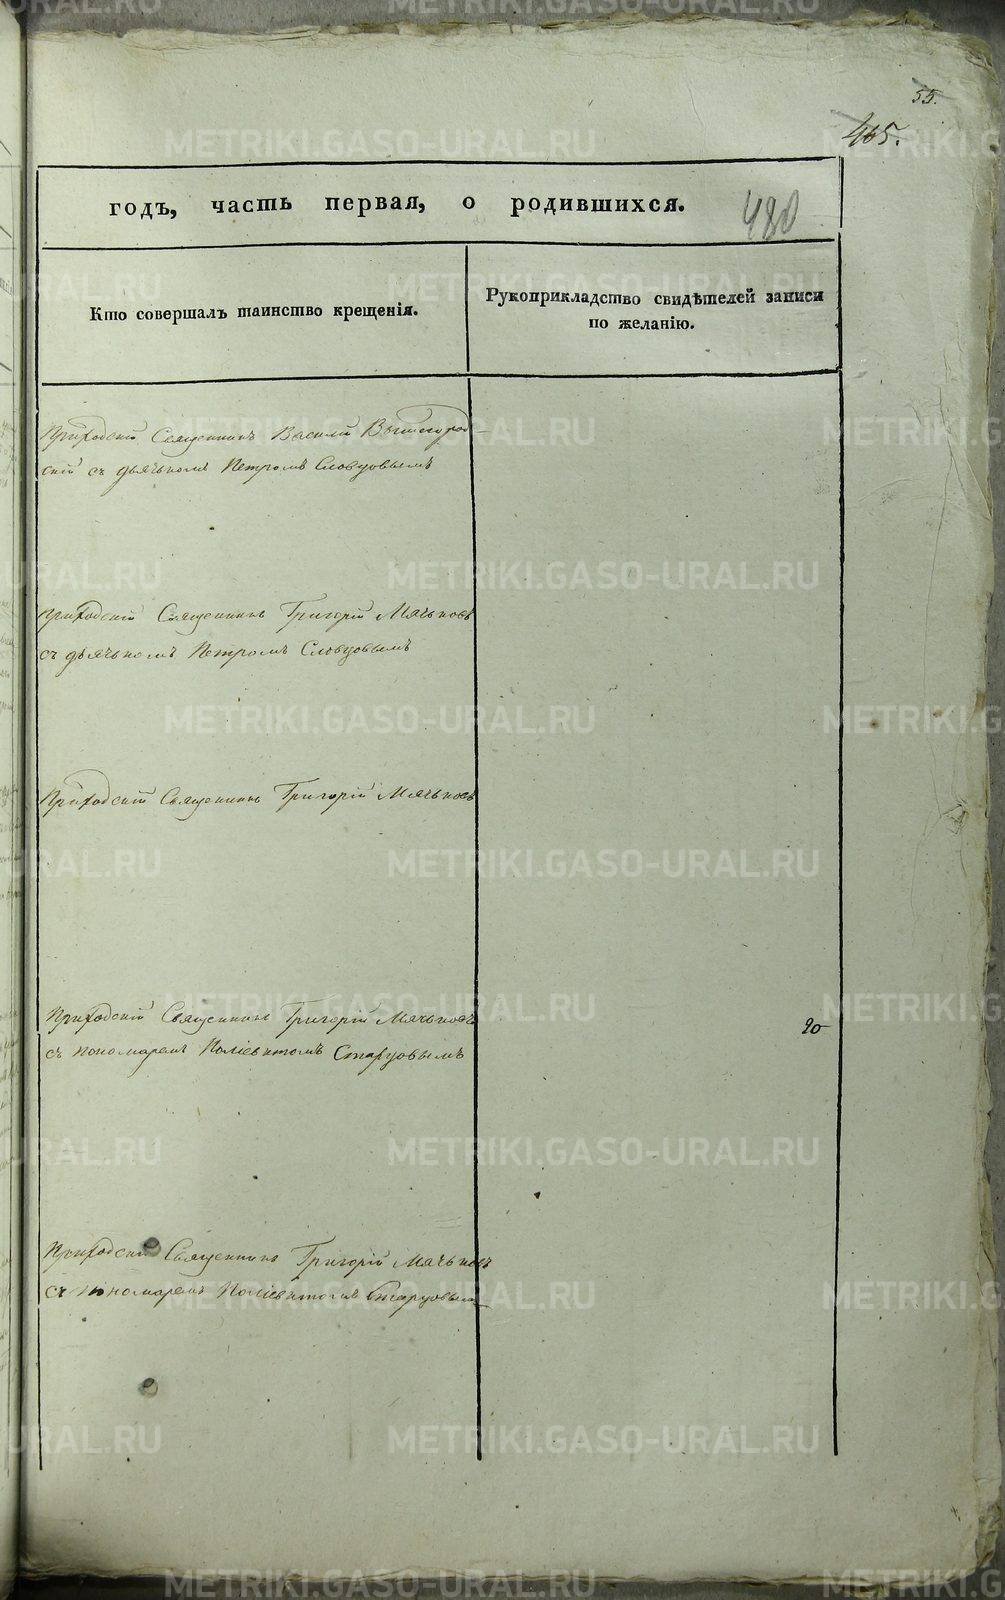 55.
465.
годъ, часть первая, о родившихся.
480
Кто совершалъ таинство крещенія.
Рукоприкладство свидѣтелей записи
по желанію.
Приходскій Священникъ Василій Вышегород-
скій съ дьячкомъ Петромъ Словцовымъ
Приходскій Священникъ Григорій Мячьковъ
съ дьячькомъ Петромъ Словцовымъ
Приходскій Священникъ Григорій Мячьковъ
Приходскій Священникъ Григорій Мячьковъ
съ пономаремъ Поліевктомъ Старцовымъ
20
Приходскій Священникъ Григорій Мячьковъ
съ пономаремъ Поліевктомъ Старцовымъ
METRIKI.GASO-URAL.RU